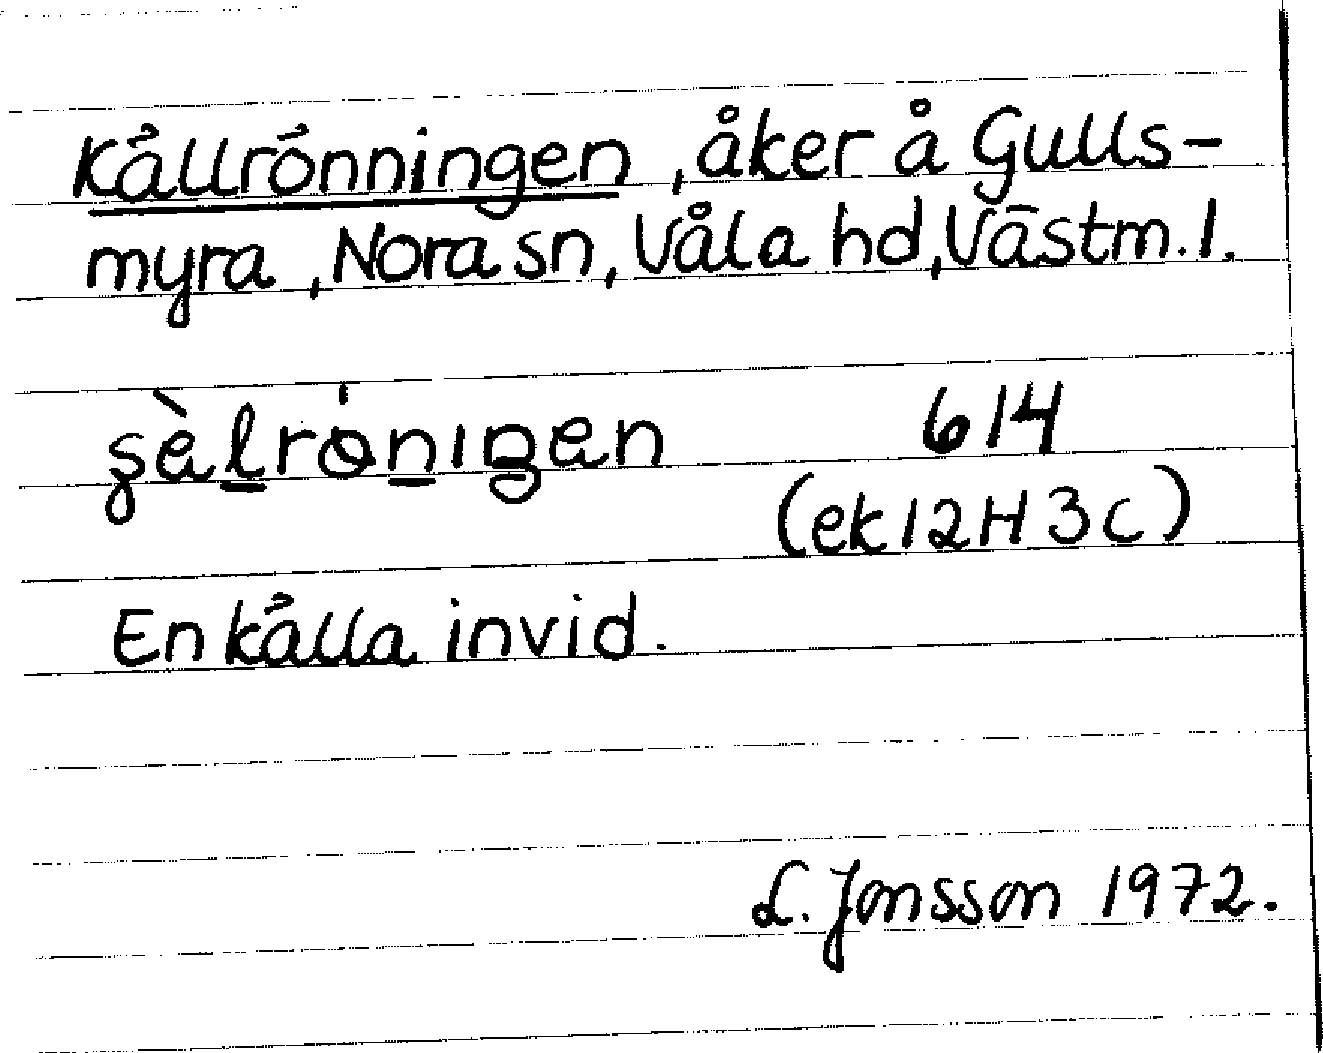 Källrönningen, åker å Gulls-
myra, Nora sn, Våla hd, Västm. l.
614
(ek 12H 3c)
En källa invid.
L. Jonsson 1972.